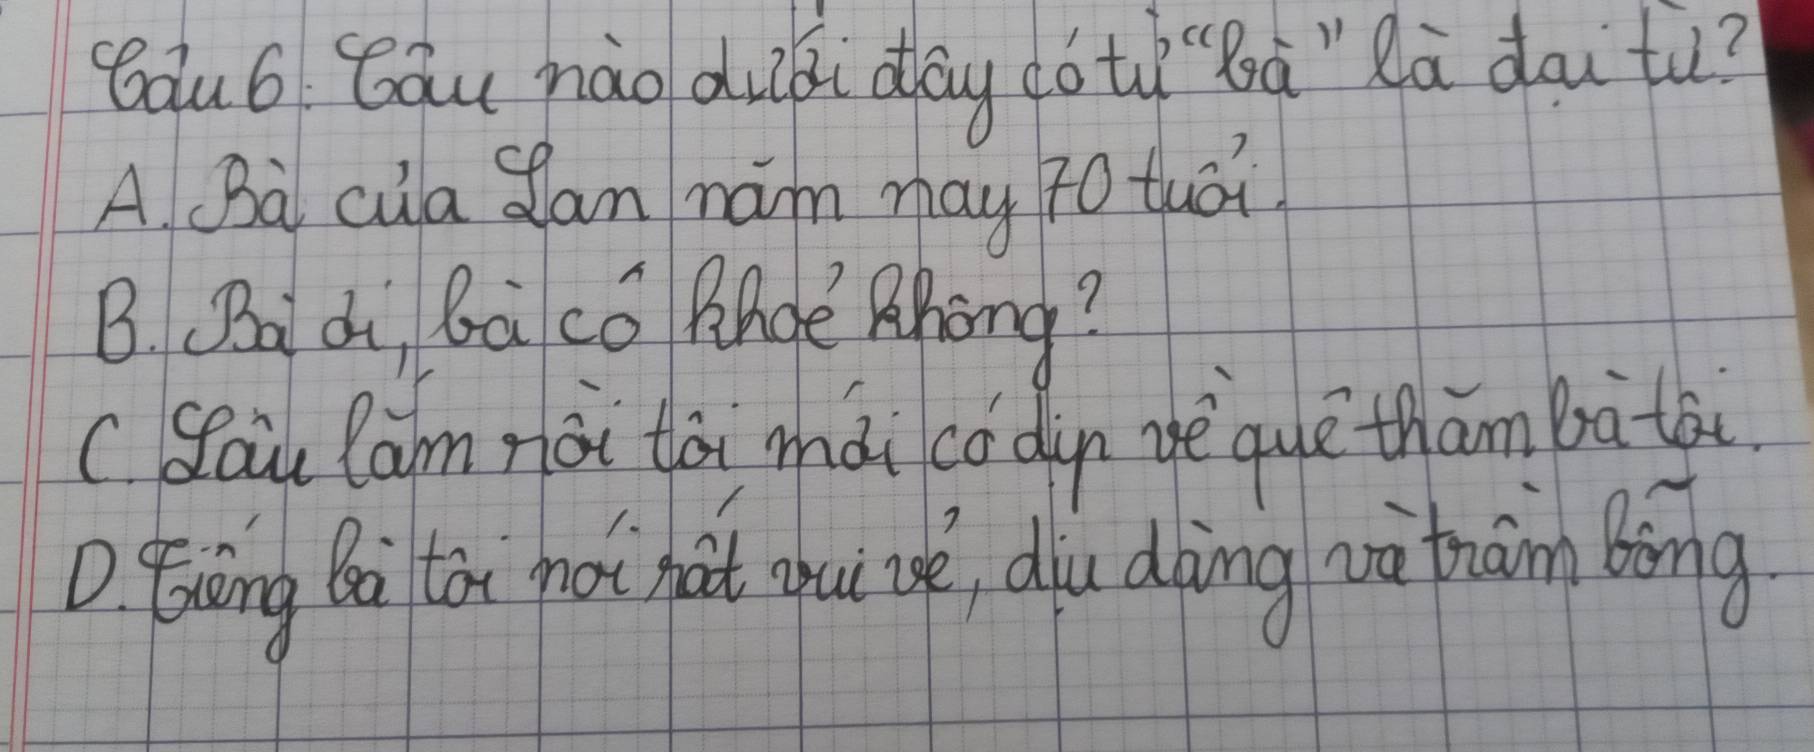 Câu 6: Câu nào dưới đây có từ "bà" là đại từ?
A. Bà của Lan năm nay 70 tuổi.
B. Bà ơi, bà có khoẻ không?
C. Lâu lắm rồi tôi mới có dịp về quê thăm bà tôi.
D. Tiếng bà tôi nói rất vui vẻ, dịu dàng và trầm bổng.